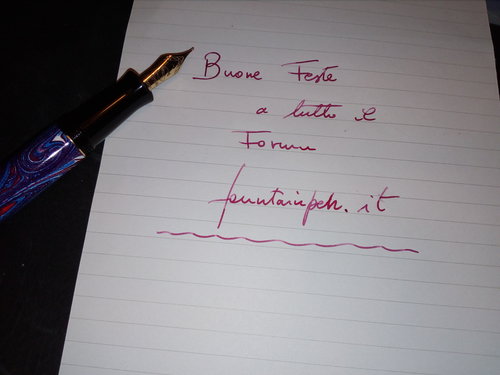 Buone Feste
a tutto il
Forum
fountainpen.it